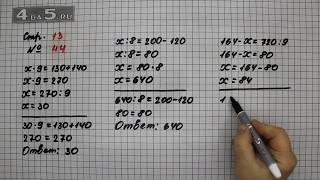 4DA5.RU
Стр. 13
№ 44
x·9=130+140
x·9=270
x=270:9
x=30
30·9=130+140
270=270
Ответ: 30
x:8=200-120
x:8=80
x=80·8
x=640
640:8=200-120
80=80
Ответ: 640
164-x=720:9
164-x=80
x=164-80
x=84
1